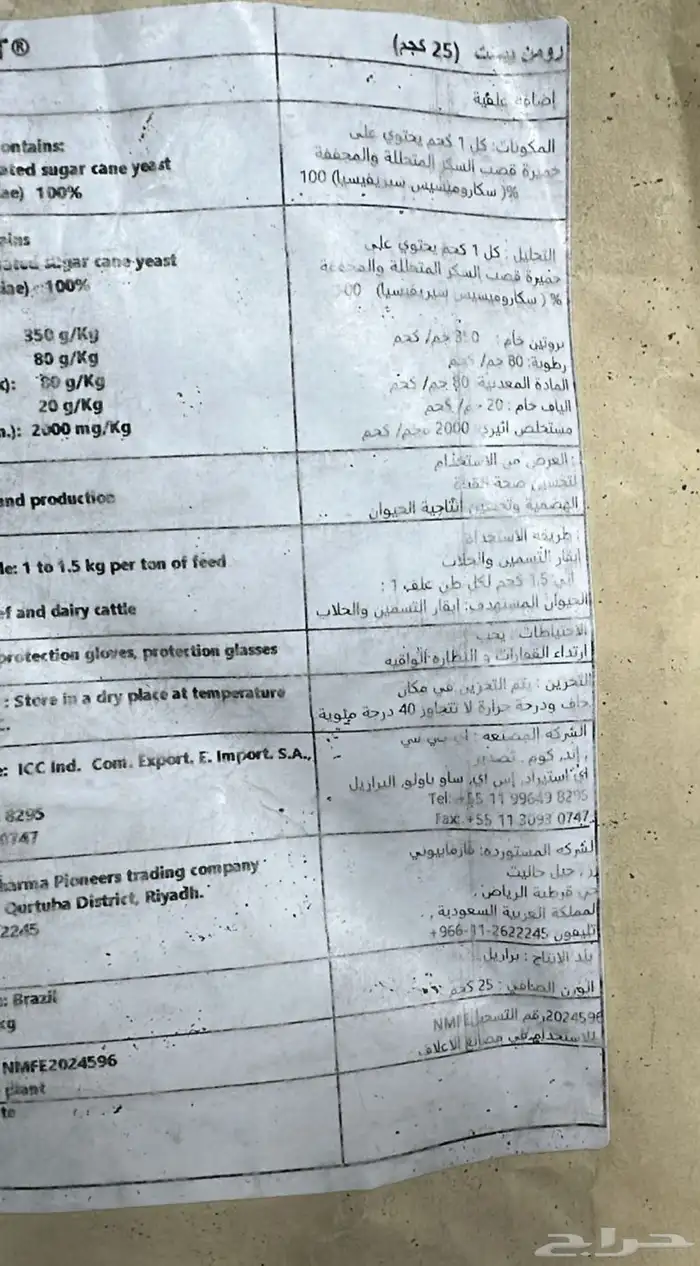 T®
رومن ييست (25 كجم)
إضافة علفية
ontains:
ated sugar cane yeast
ae) 100%
المكونات: كل 1 كجم يحتوي على
خميرة قصب السكر المتحللة والمجففة
%( سكاروميسيس سيريفيسيا) 100
ains
ated sugar cane yeast
iae) 100%
التحليل : كل 1 كجم يحتوي على
خميرة قصب السكر المتحللة والمجففة
% ( سكاروميسيس سيريفيسيا)
350 g/Kg
80 g/Kg
80 g/Kg
20 g/Kg
n.): 2000 mg/Kg
بروتين خام : 350 جم/ كجم
رطوبة: 80 جم/ كجم
المادة المعدنية 80 جم/ كجم
الياف خام : 20 جم/ كجم
مستخلص اثيري 2000 مجم/ كجم
and production
: الغرض من الاستخدام
لتحسين صحة القناة
الهضمية وتحسين انتاجية الحيوان
le: 1 to 1.5 kg per ton of feed
ef and dairy cattle
: طريقة الاستخدام
أبقار التسمين والحلاب
الي 1.5 كجم لكل طن علف 1 :
الحيوان المستهدف: ابقار التسمين والحلاب
protection gloves, protection glasses
الاحتياطات : يجب
ارتداء القفازات و النظارة الواقيه
: Store in a dry place at temperature
C.
التخزين : يتم التخزين في مكان
جاف ودرجة حرارة لا تتجاوز 40 درجة مئوية
e: ICC Ind. Com. Export. E. Import. S.A.,
8295
0747
الشركه المصنعه : اي سي سي
, إند, كوم . تصدير
أي استيراد, إس اي, ساو باولو, البرازيل
Tel: +55 11 99649 8295
Fax: +55 11 3093 0747
harma Pioneers trading company
Qurtuba District, Riyadh.
2245
لشركه المستورده: فارمابيوني
حي قرطبة الرياض,
لمملكة العربية السعودية ,
تليفون 2622245-11-966+
: Brazil
kg
بلد الانتاج : برازيل
الوزن الصافي : 25 كجم
NMFE2024596
plant
te
2024596رقم التسجيلNMFE
للاستخدام في مصانع الاعلاف
حراج